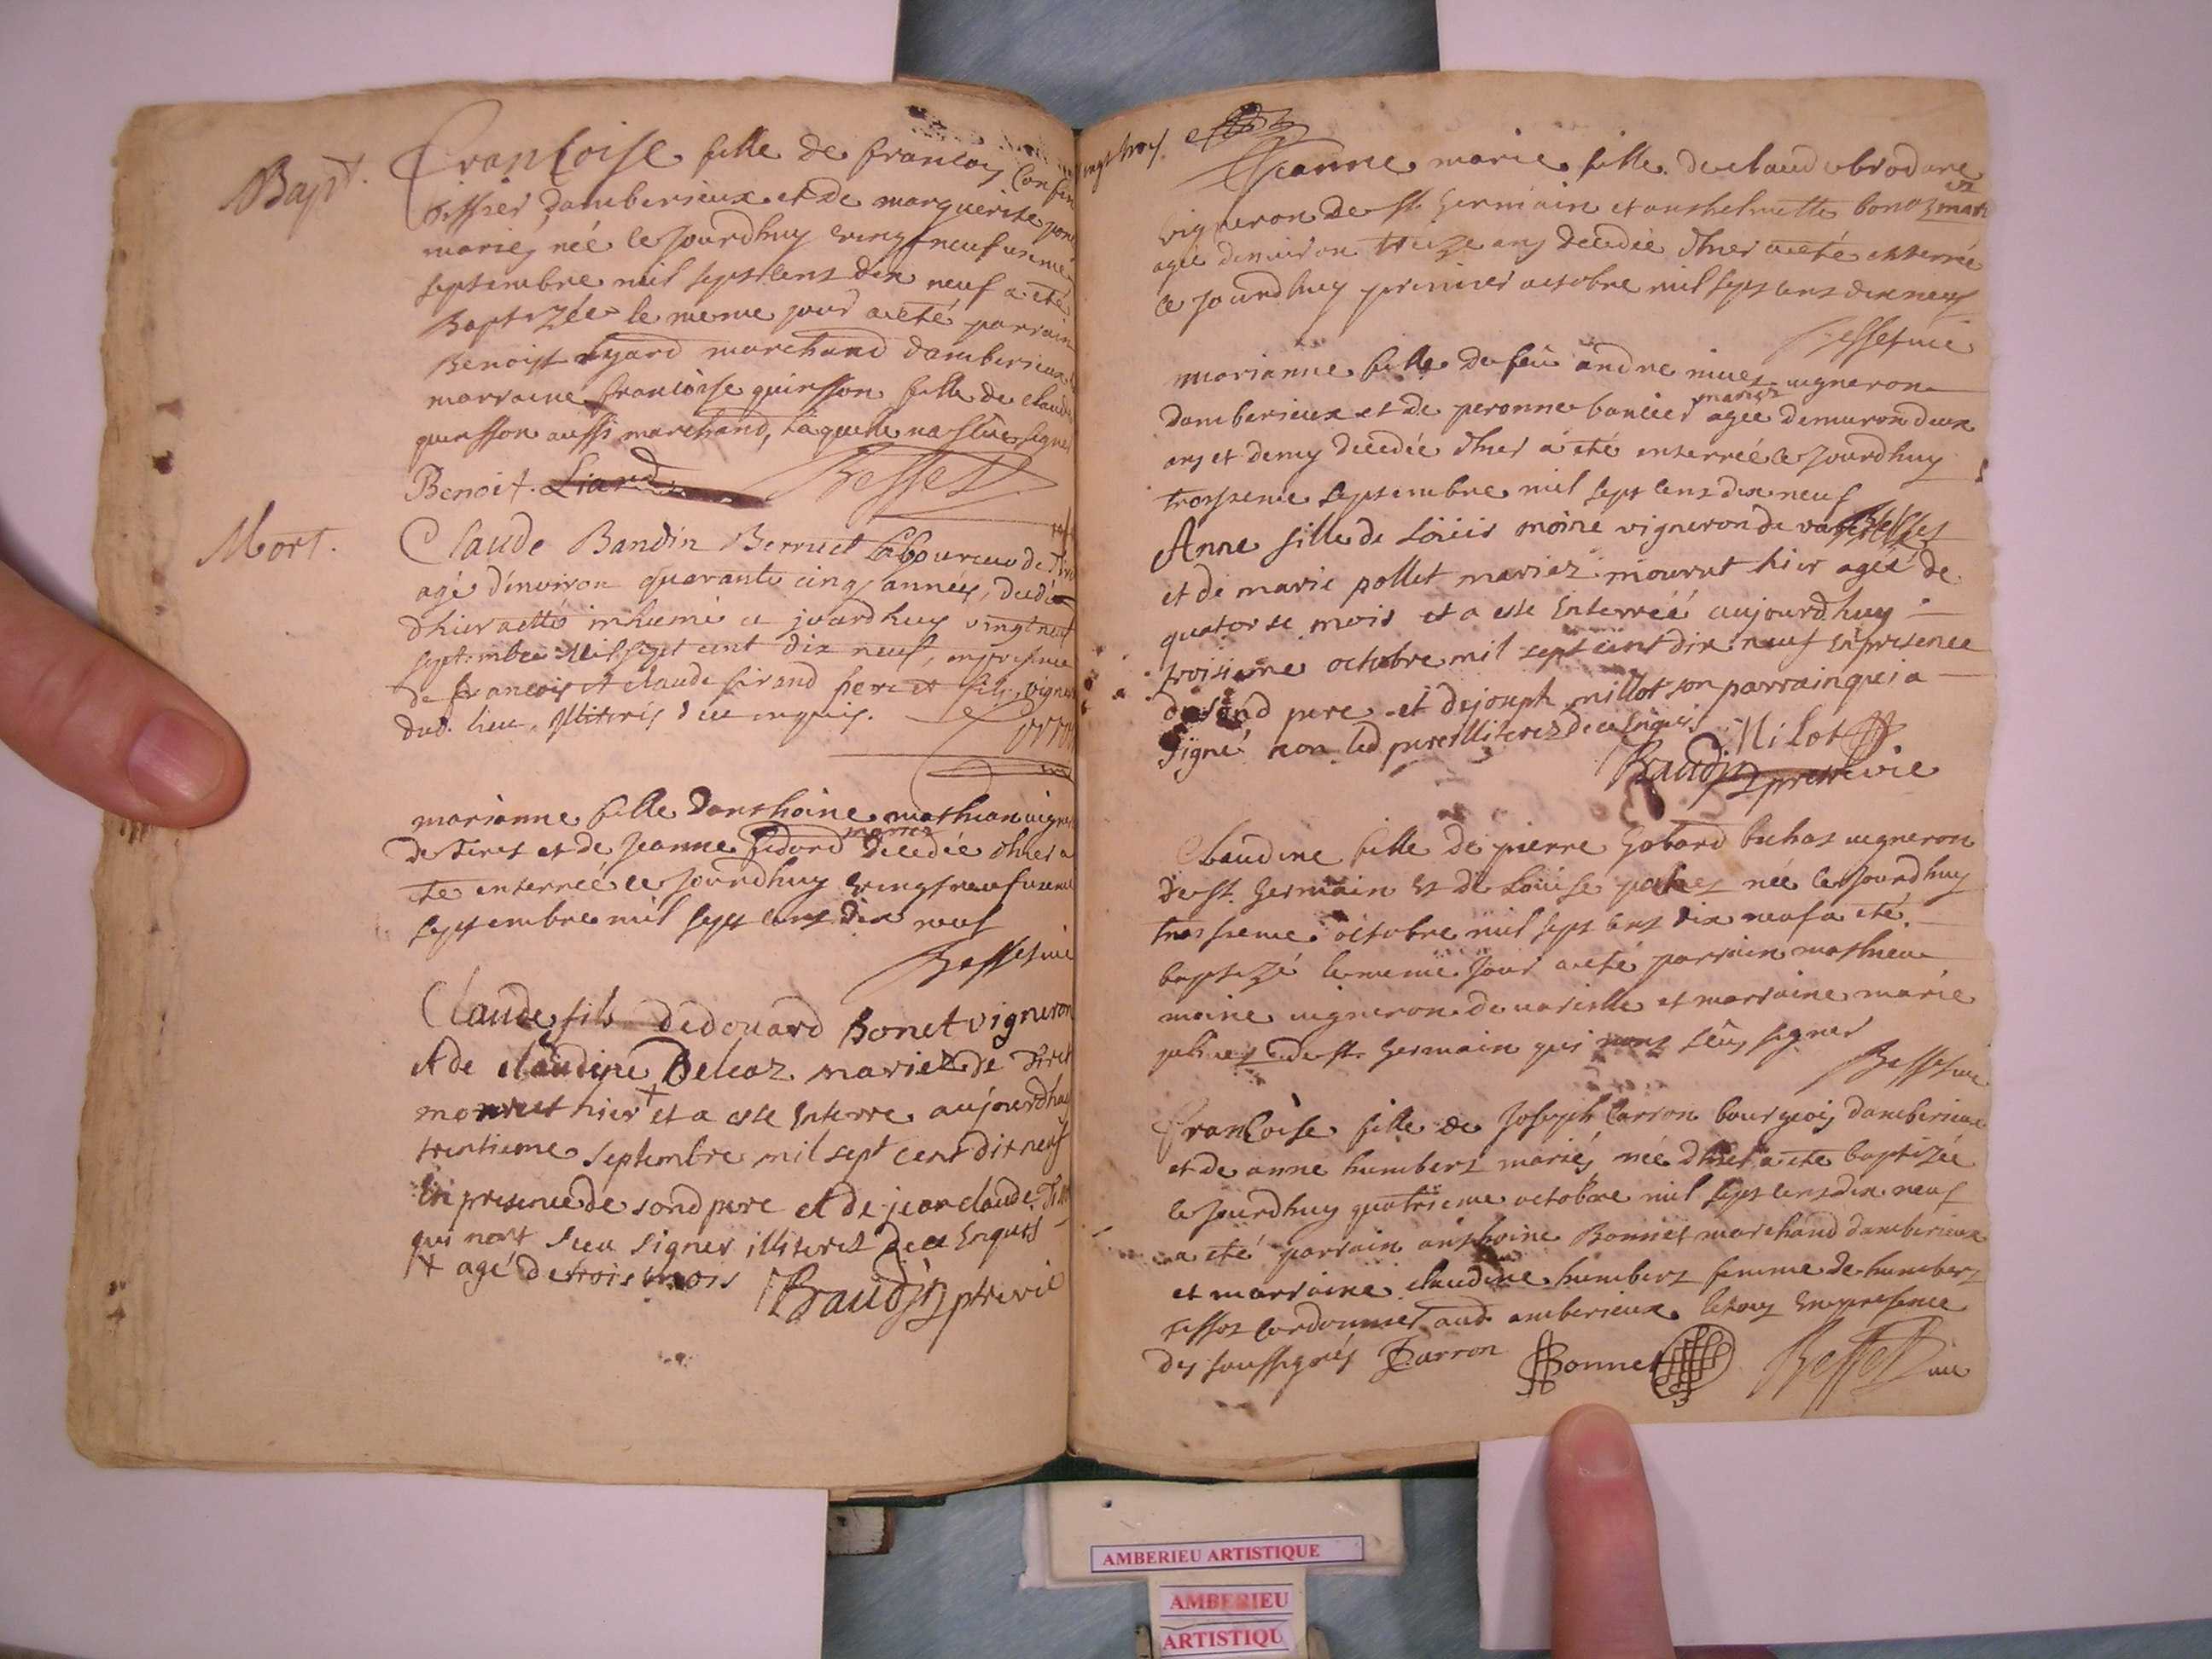 Bapt.
Francoise fille de francois
tissier damberieux et de marguerite
mariés née ce jourdhuy vingt neufuieme
septembre mil sept cens dix neuf a eté
Baptizée le meme jour a eté parrain
Benoist Lyard marchand damberieux
marraine francoise quinsson fille de claude
quinsson aussi marchand, laquelle na sçüe signer
Benoit. Liard Besset
Mort.
Claude Bandin Berruet Laboureur de
agé denviron quarante cinq années, decedé
dhier a etté inhumé ce jourdhuy vingt neuf
septembre mil sept cent dix neuf, en presence
de francois et claude girand pere et fils, vigne
dud. lieu, illiteris de ce enquis.
marianne fille danthoine mathian vigne
de Tiret et de Jeanne mariez decedée dhier a
eté enterrée ce jourdhuy vingt neufuieme
septembre mil sept cens dix neuf
Besset vic
Claude fils dedouard Bonet vigneron
et de claudine Beleaz mariez de Tiret
mourut hier + et a este Enterre aujourdhuy
trentieme septembre mil sept cens dix neuf
En presence de sond pere et de jean claude
qui nont sceu signer illiterez de ce Enquis
+ agé de trois mois Baudin ptre vic
Jeanne marie fille de claude brodare
vigneron de st Germain et anthelmette bonaz mariez
agée denviron treize ans decedée dhier a eté enterrée
ce jourdhuy premier octobre mil sept cens dix neuf
Besset vic
marianne fille de feu andre vigneron
damberieux et de peronne bancier mariez agée denviron deux
ans et demy decedée dhier a eté enterrée ce jourdhuy
troisieme septembre mil sept cens dix neuf
Besset
Anne fille de Loüis moine vigneron de
et de marie pollet mariez mourut hier agéé de
quatorze mois et a este Enterréé aujourdhuy
troisieme octobre mil sept cens dix neuf En presence
de sond pere et de joseph millot son parrain qui a
signé non led pere illiterez de ce Enquis Milot
Baudin prestre vic
Claudine fille de pierre Gobard buhas vigneron
de st. Germain et de Loüise née ce jourdhuy
troisieme octobre mil sept cens dix neuf a eté
baptizé le meme jour a eté parrain mathieu
moine vigneron de uareille et marraine marie
de st Germain qui nont sçeu signer
Besset vic
Francoise fille de Joseph Carron bourgeois damberieux
et de anne humbert mariés née dhier a eté baptizée
ce jourdhuy quatrieme octobre mil sept cens dix neuf
a eté parrain anthoine Bonnet marchand damberieux
et marraine claudine humbert femme de humbert
tissot cordonnier aud amberieux le tout en presence
des soussignés Carron Bonnet Besset vic
AMBERIEU ARTISTIQUE
AMBERIEU
ARTISTIQU